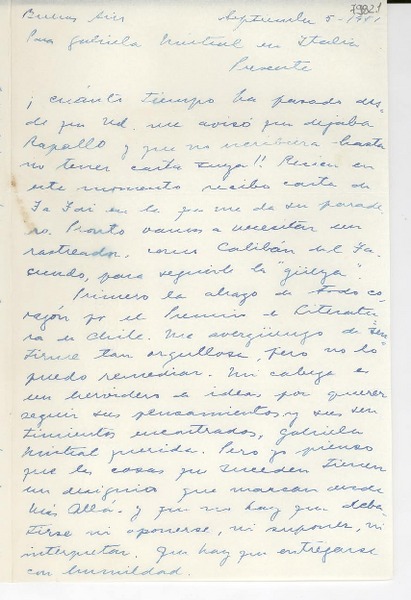 79821
Buenos Aires Septiembre 5-1951
Para Gabriela Mistral en Italia
Presente
¡Cuánto tiempo ha pasado des-
de que Ud. me avisó que dejaba
Rapallo y que no escribiera hasta
no tener carta suya!! Recien en
este momento recibo carta de
Fa Fdi en la que me da su parade-
ro. Pronto vamos a necesitar un
rastreador, como Calibán del Fa-
cundo, para seguirle la "güeya".
Primero la abrazo de todo co-
razón por el Premio de Literatu-
ra en Chile. Me avergüenzo de sen-
tirme tan orgullosa, pero no lo
puedo remediar. Mi cabeza es
un hervidero de ideas por querer
seguir sus pensamientos y sus sen-
timientos encontrados, Gabriela
Mistral querida. Pero yo pienso
que las cosas que suceden tienen
un designio que marcan desde
Más Allá y que no hay que deba-
tirse ni oponerse, ni suponer, ni
interpretar. Que hay que entregarse
con humildad.